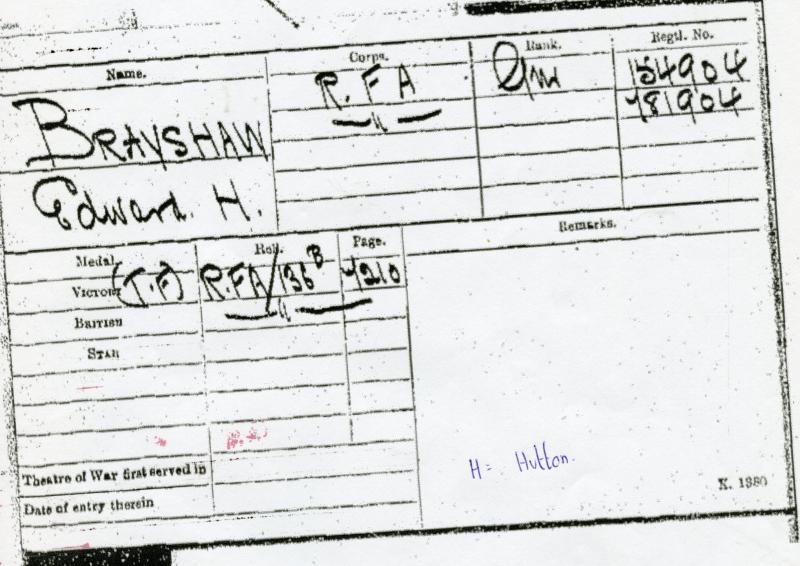 Name. Corps. Rank. Regtl. No.
BRAYSHAW R.F.A Gnr 154904
—"— 781904
Edward. H.
Medal. Roll. Page. Remarks.
Victory (T.F) R.F.A/136 B 4210
British —"—
Star
Theatre of War first served in
Date of entry therein
H = Hutton.
K. 1380